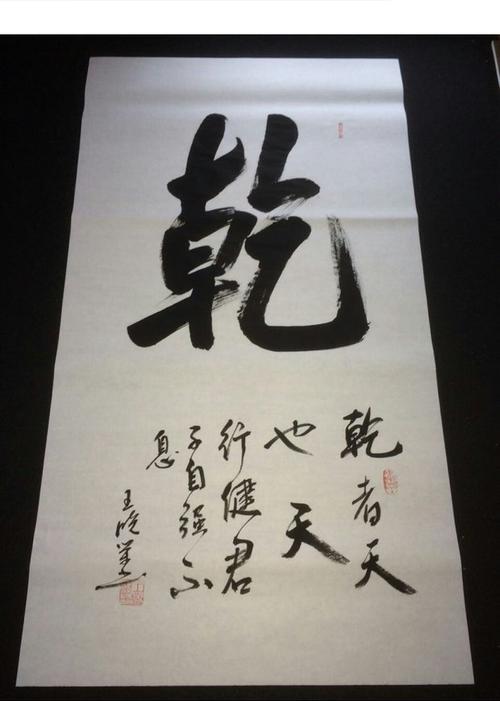 乾
乾者天
也天
行健君
子自强不
息
王晓